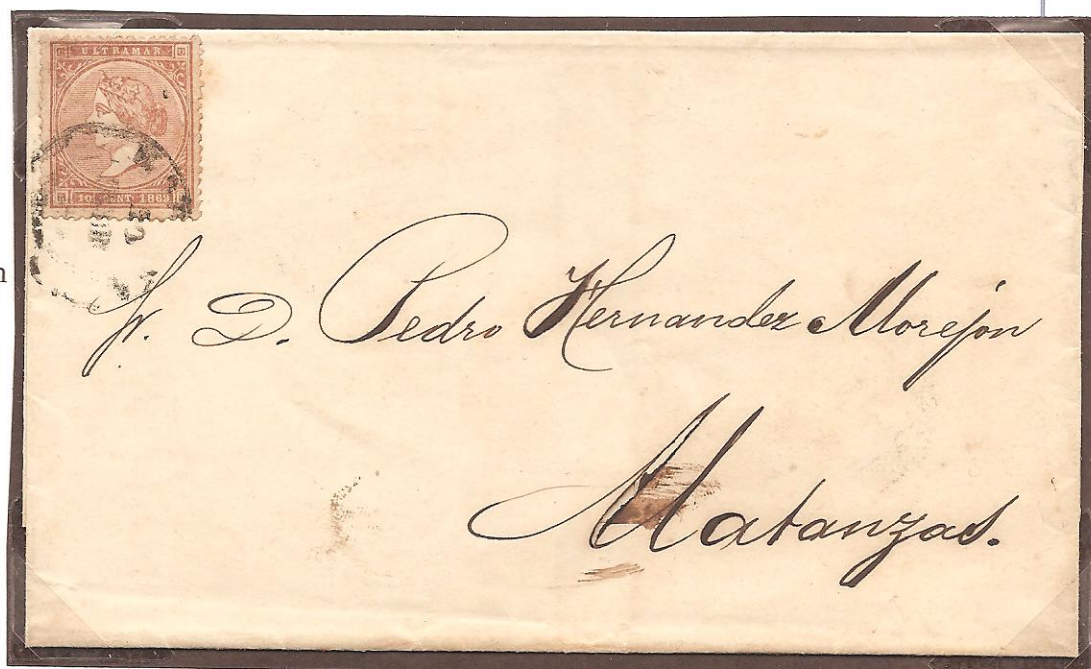 ULTRAMAR
10 CENT 1869
n
Sr. D. Pedro Hernandez Morejón
Matanzas.